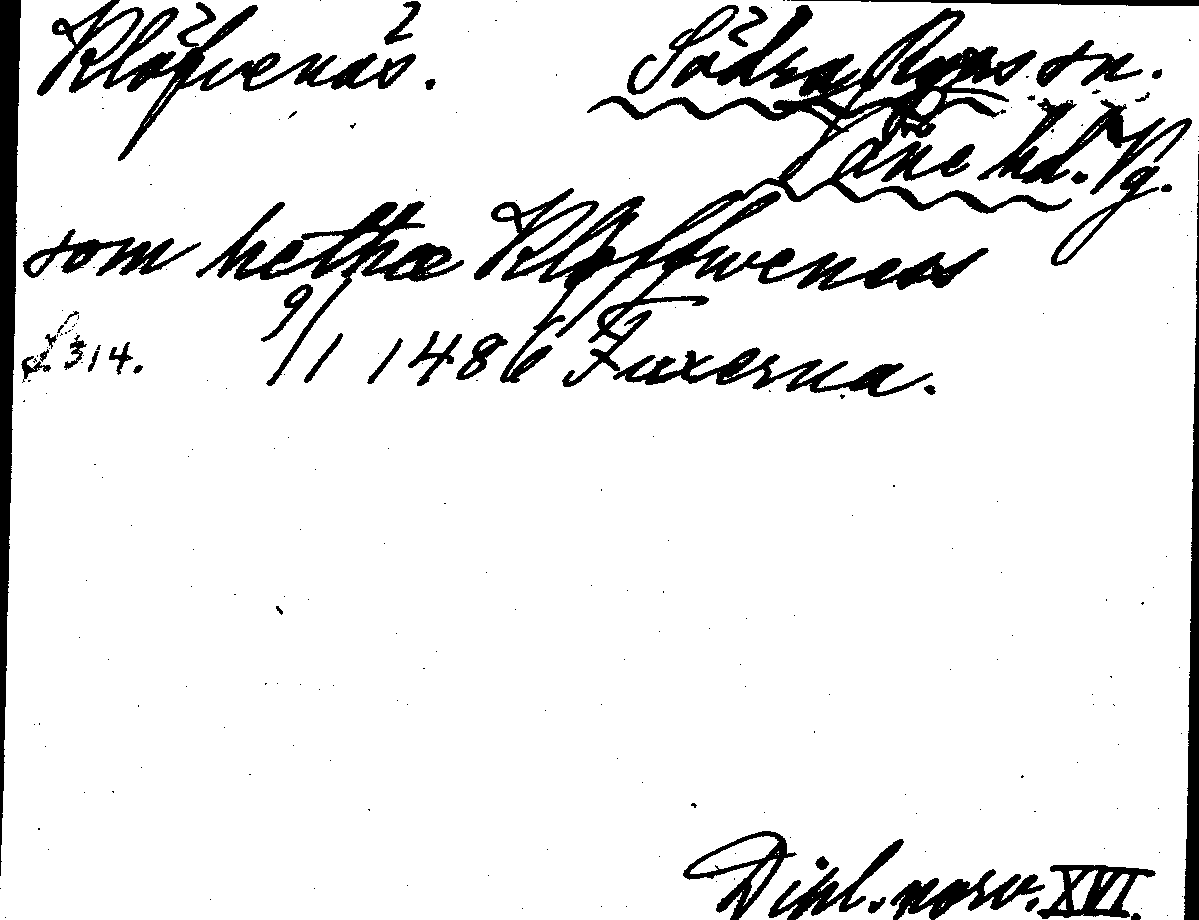 Klöfvenäs. Södra Ryrs sn.
Väne hd. Vg.
som hethæ Kløffweness
S. 314. 9/1 1486 Fuxerna.
Dipl. norv. XVI.